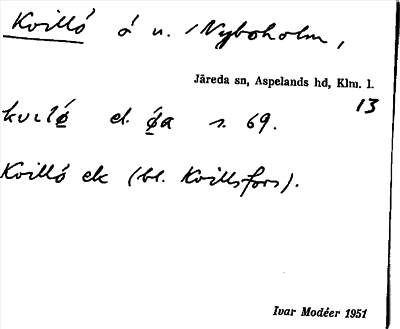 Kvillö å u. Nyboholm,
Järeda sn, Aspelands hd, Klm. l.
13
el. s. 69.
Kvillö ek (bl. Kvillsfors).
Ivar Modéer 1951